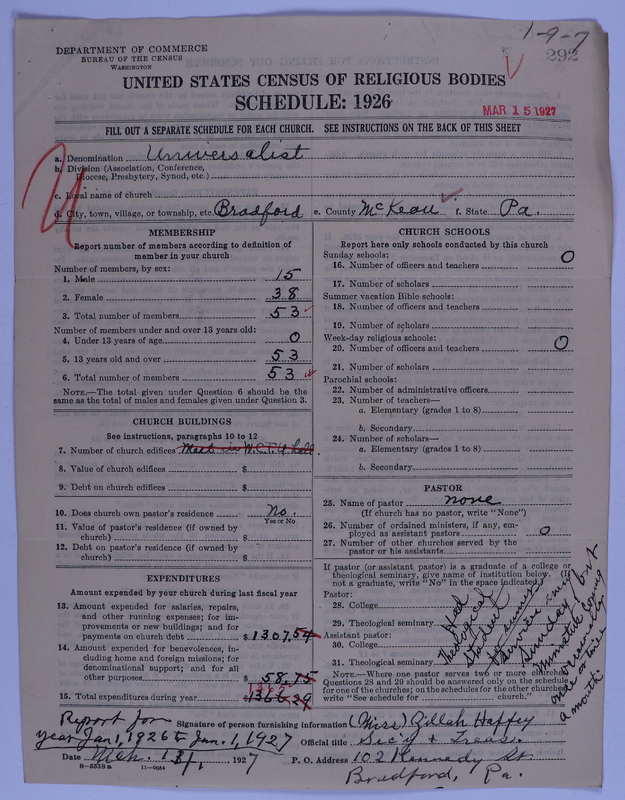 1-9-7
292
DEPARTMENT OF COMMERCE
BUREAU OF THE CENSUS
WASHINGTON
UNITED STATES CENSUS OF RELIGIOUS BODIES
SCHEDULE: 1926
MAR 15 1927
FILL OUT A SEPARATE SCHEDULE FOR EACH CHURCH. SEE INSTRUCTIONS ON THE BACK OF THIS SHEET
a. Denomination Universalist
b. Division (Association, Conference, Diocese, Presbytery, Synod, etc.)
c. Local name of church
d. City, town, village, or township, etc. Bradford e. County McKean f. State Pa.
MEMBERSHIP
Report number of members according to definition of
member in your church
Number of members, by sex:
1. Male 15
2. Female 38
3. Total number of members 53
Number of members under and over 13 years old:
4. Under 13 years of age 0
5. 13 years old and over 53
6. Total number of members 53
NOTE.—The total given under Question 6 should be
same as the total of males and females given under Question 3.
CHURCH BUILDINGS
See instructions, paragraphs 10 to 12
7. Number of church edifices Meet in W.C.T.U. hall
8. Value of church edifices $
9. Debt on church edifices $
10. Does church own pastor's residence No.
Yes or No
11. Value of pastor's residence (if owned by
church) $
12. Debt on pastor's residence (if owned by
church) $
EXPENDITURES
Amount expended by church during last fiscal year
13. Amount expended for salaries, repairs,
and other running expenses; for im-
provements or new buildings; and for
payments on church debt $1307,54
14. Amount expended for benevolences, in-
cluding home and foreign missions; for
denominational support; and for all
other purposes $58,75
15. Total expenditures during year 1366 29
CHURCH SCHOOLS
Report here only schools conducted by this church
Sunday schools: 0
16. Number of officers and teachers
17. Number of scholars
Summer vacation Bible schools:
18. Number of officers and teachers
19. Number of scholars
Week-day religious schools:
20. Number of officers and teachers 0
21. Number of scholars
Parochial schools:
22. Number of administrative officers
23. Number of teachers—
a. Elementary (grades 1 to 8)
b. Secondary
24. Number of scholars—
a. Elementary (grades 1 to 8)
b. Secondary
PASTOR
25. Name of pastor none
(If church has no pastor, write "None")
26. Number of ordained ministers, if any, em-
ployed as assistant pastors 0
27. Number of other churches served by the
pastor or his assistants
If pastor (or assistant pastor) is a graduate of a college or
theological seminary, give name of institution below.
not a graduate, write "No" in the space indicated
Pastor:
28. College
29. Theological seminary
Assistant pastor:
30. College
31. Theological seminary
NOTE.—Where one pastor serves two or more churches
Questions 28 and 29 should be answered only on the schedule
for one of the churches; on the schedules for the other churches
write "See schedule for church."
Had
Theological
Student
Sunday but
once or twice
a month
Report for
year Jan 1, 1926 to Jan. 1, 1927
Signature of person furnishing information (Miss) Zillah Haffey
Official title Sec'y & Treas.
Date Mch. 1927
P. O. Address 102 Kennedy St.
Bradford, Pa.
8—5518 a 11—9684